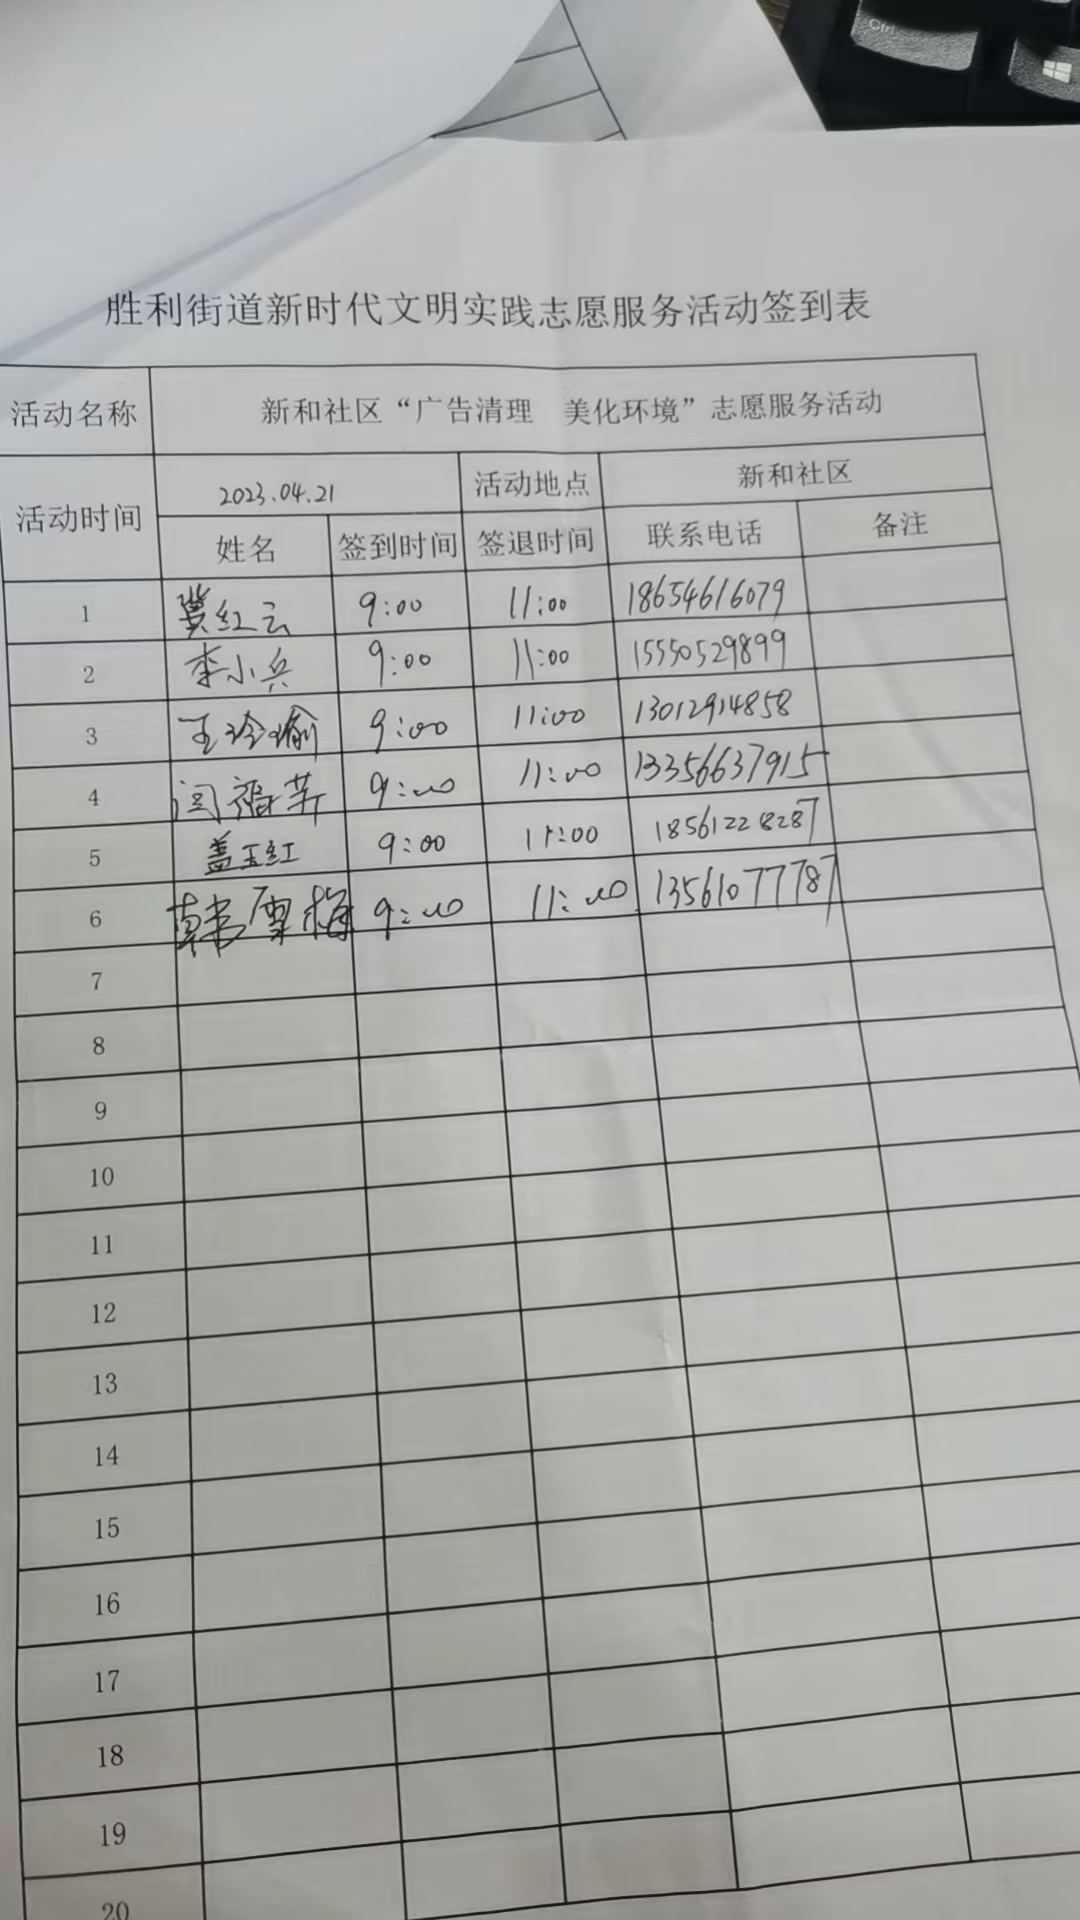 Ctrl
胜利街道新时代文明实践志愿服务活动签到表
活动名称 新和社区“广告清理 美化环境”志愿服务活动
活动时间 2023.04.21 活动地点 新和社区
姓名 签到时间 签退时间 联系电话 备注
1 冀红云 9:00 11:00 18654616079
2 李小兵 9:00 11:00 15550529899
3 王玲瑜 9:00 11:00 13012914858
4 闫福英 9:00 11:00 13356637915
5 盖玉红 9:00 11:00 18561228287
6 韩雪梅 9:00 11:00 13561077787
7
8
9
10
11
12
13
14
15
16
17
18
19
20